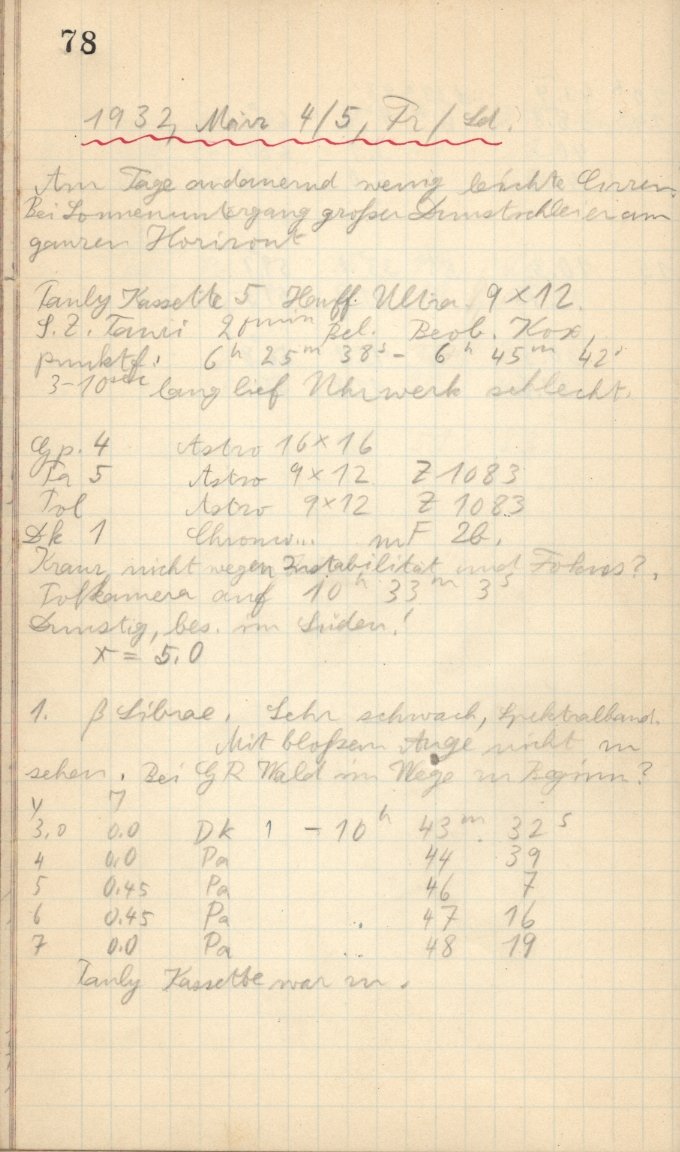 78
1932, März 4/5, Fr/Sd.
Am Tage andauernd wenig leichte Cirren.
Bei Sonnenuntergang großer Dunstschleier am
ganzen Horizont
Kassette 5 Hauff Ultra 9×12.
S.Z. Tauri 20min Bel. Beob. Kox,
punktf. 6h 25m 38s – 6h 45m 42s
3-10sec lang lief Uhrwerk schlecht.
Gp. 4 Astro 16×16
Pa 5 Astro 9×12 Z 1083
Tol Astro 9×12 Z 1083
Dk 1 mF 26.
nicht wegen Instabilität und Fokus?,
Tolkamera auf 10h 33m 3s
Dunstig, bes. im Süden!
x = 5.0
1. β Librae. Sehr schwach, Spektralband.
Mit bloßem Auge nicht zu
sehen. Bei GR Wald im Wege zu Beginn?
y
3,0 0.0 Dk 1 – 10h 43m 32s
4 0.0 Pa 44 39
5 0.45 Pa 46 7
6 0.45 Pa .. 47 16
7 0.0 Pa .. 48 19
Kassette war zu.